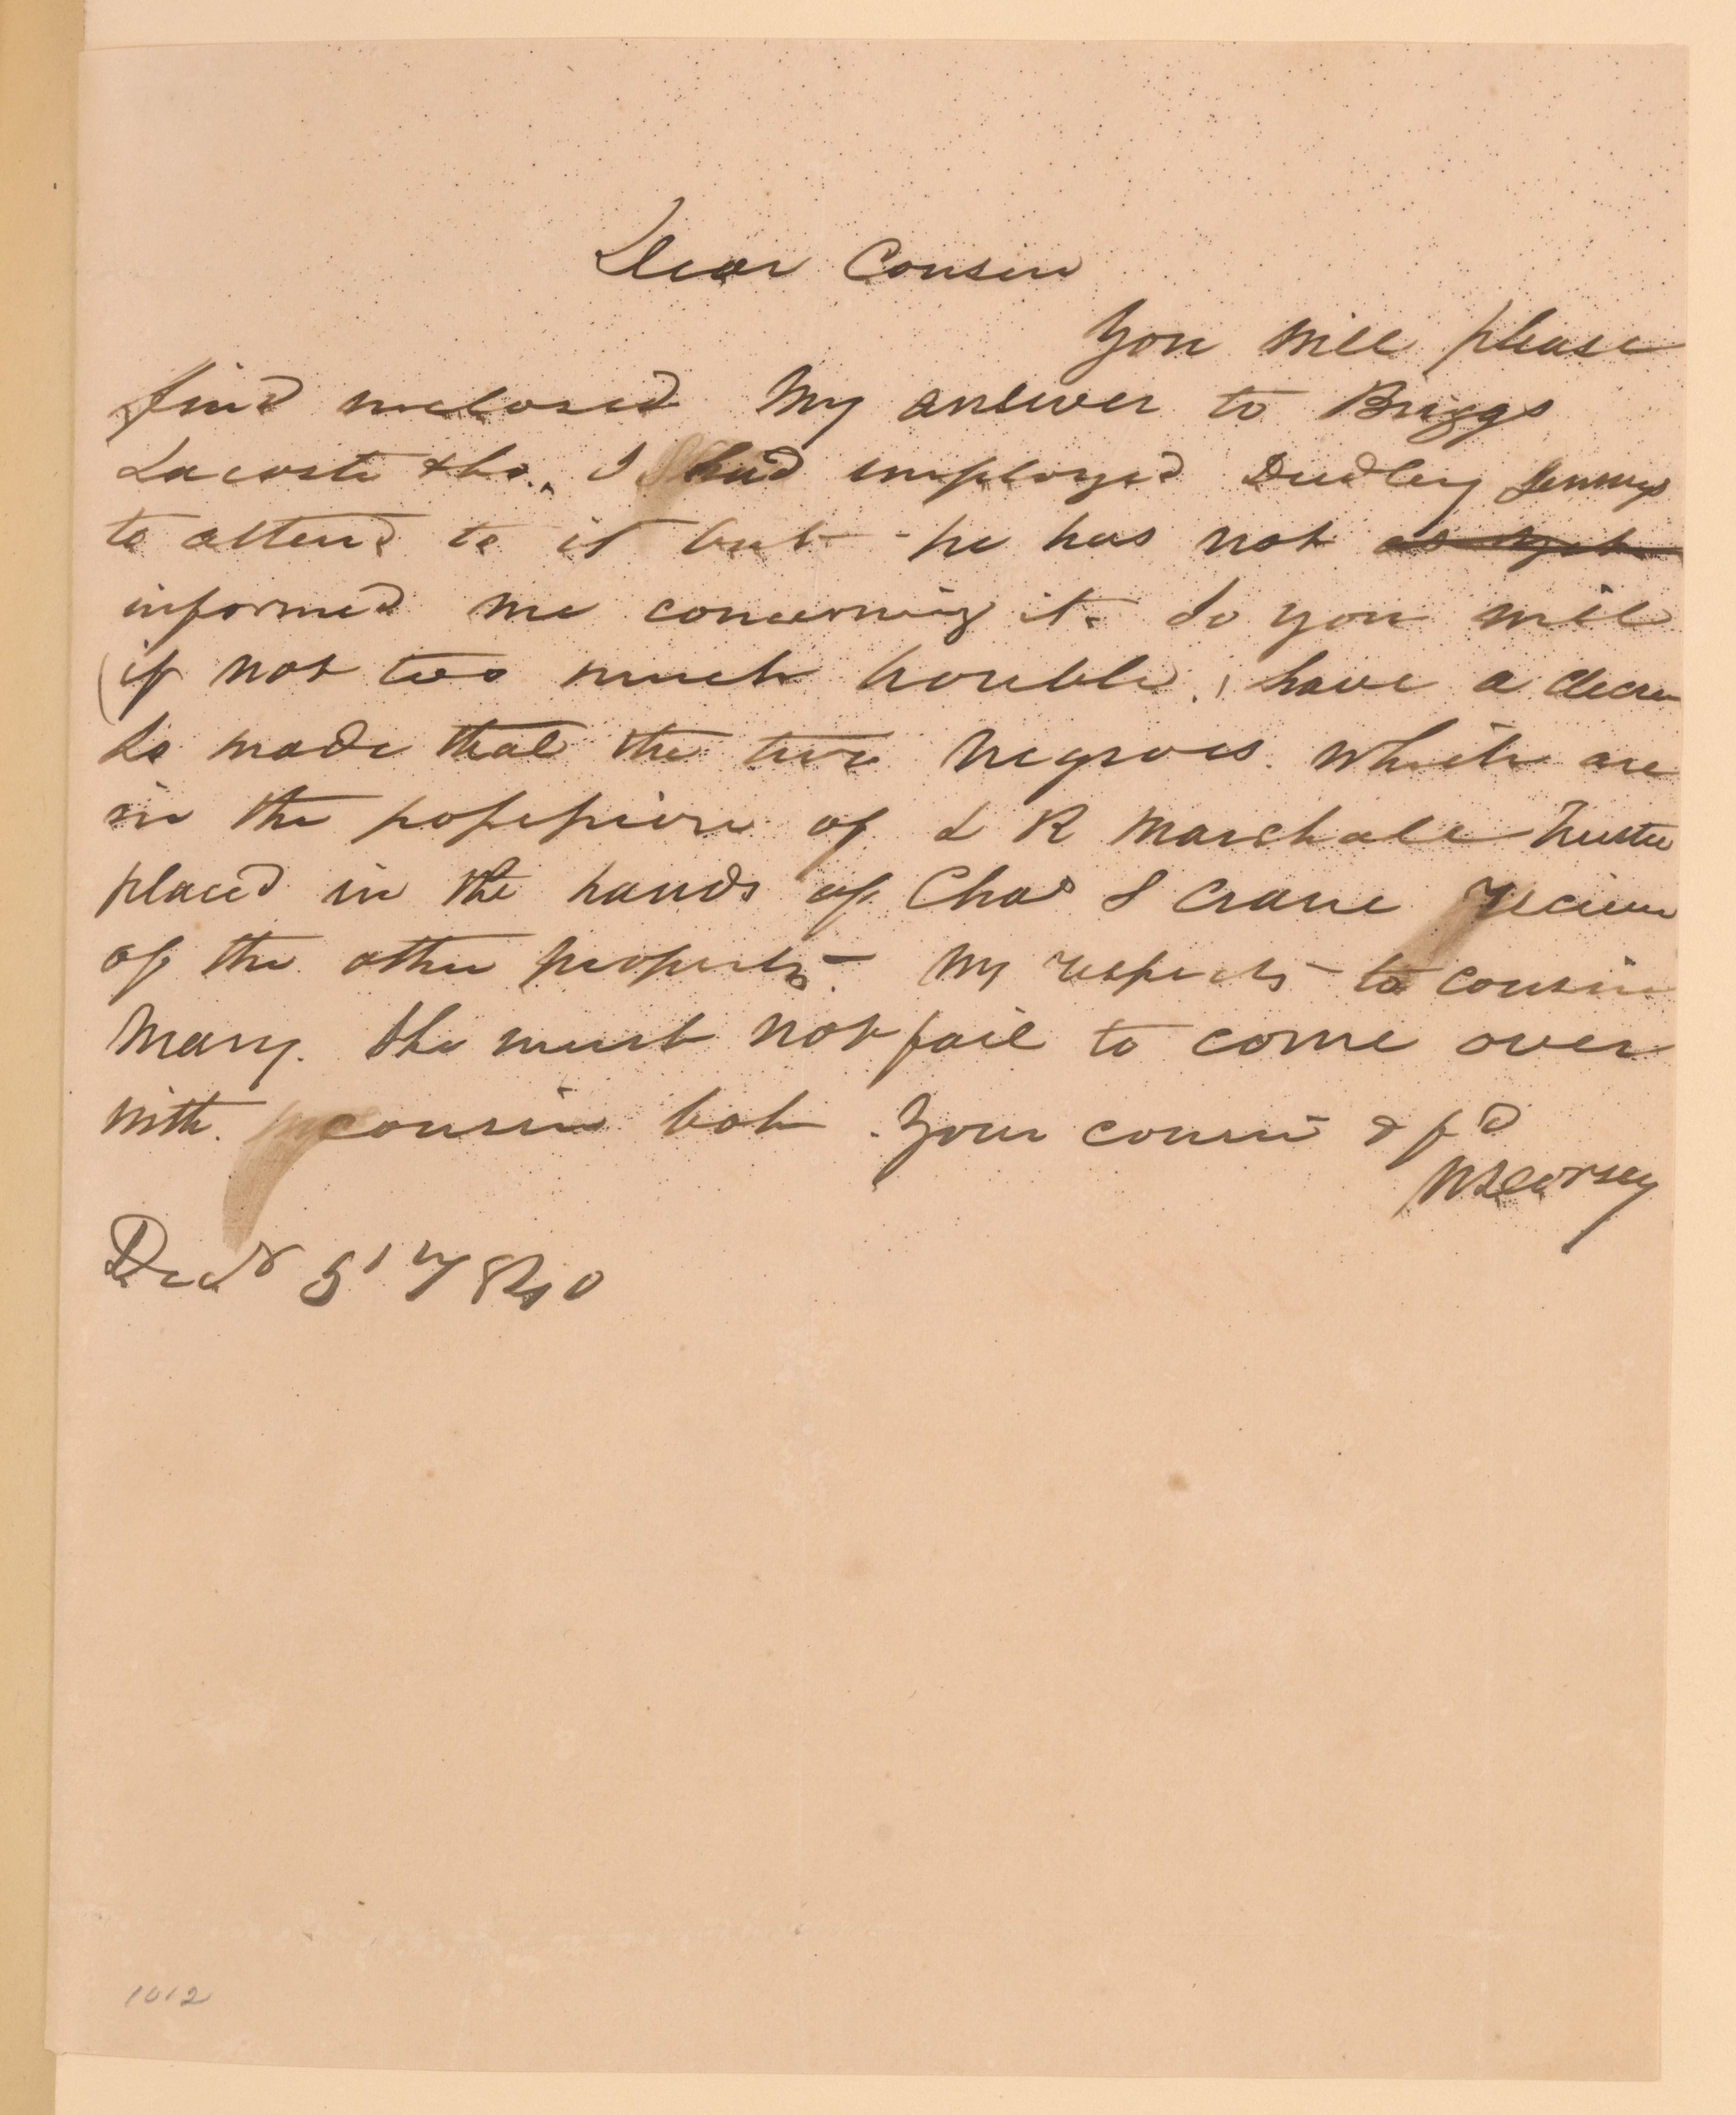 Dear Cousin
You will please
find inclosed My answer to Briggs
Lacoste & Co. I had employed Dudley Jennings
to attend to it but he has not as yet
informed me concerning it. So you will
(if not too much trouble, have a decree
be made that the two Negroes which are
in the possession of L R Marshall Trustee
placed in the hands of Chas S Crane reciever
of the other property. My respects to cousin
Mary. She must not fail to come over
with cousin bob. Your cousin & fd
Dorsey
Decr 5th 1840
1012